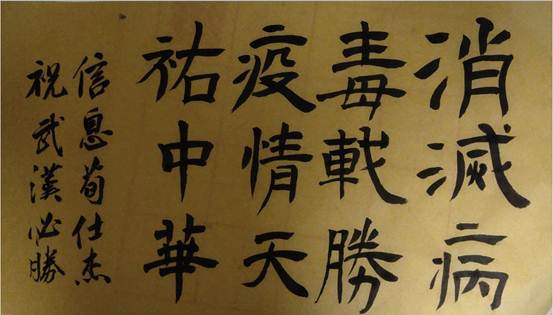 消滅病
毒載勝
疫情天
祐中華
信息荀仕杰
祝武漢必勝